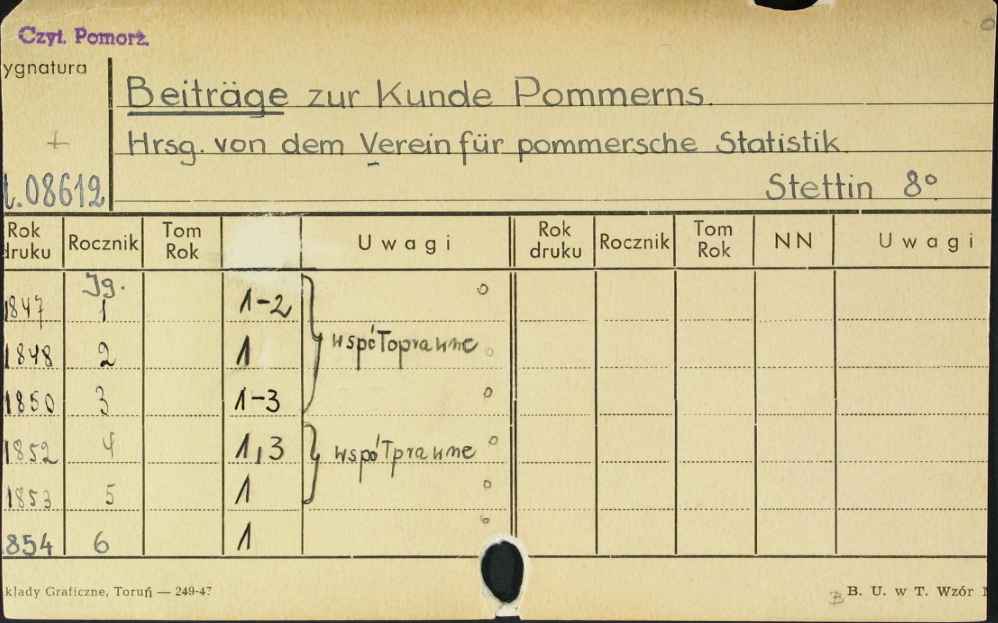 Czyt. Pomorz.
ygnatura
Beiträge zur Kunde Pommerns.
+
Hrsg. von dem Verein für pommersche Statistik
.08612
Stettin 8°
Rok druku Rocznik Tom Rok Uwagi Rok druku Rocznik Tom Rok NN Uwagi
Jg.
1847 1 1-2
współoprawne
1848 2 1
1850 3 1-3
1852 4 1,3 współprawne
1853 5 1
854 6 1
kłady Graficzne, Toruń — 249-47
B. U. w T. Wzór